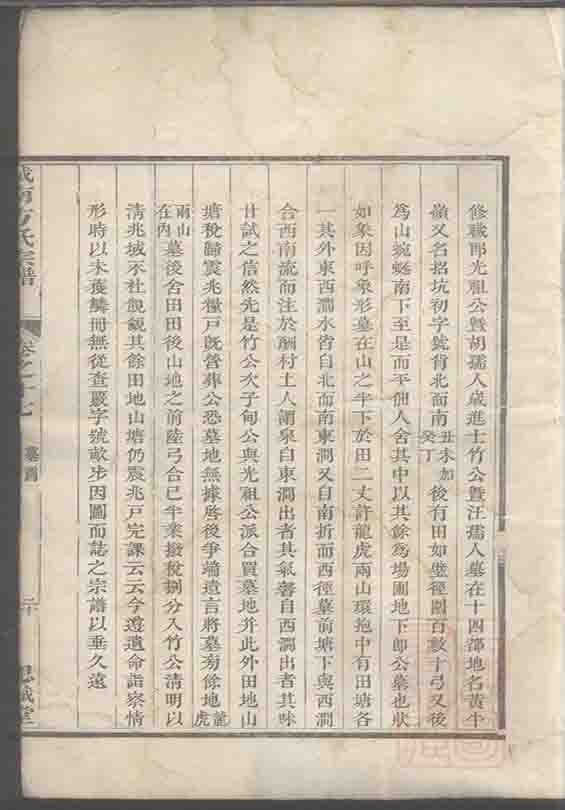 修職郎光祖公暨胡孺人歲進士竹公暨汪孺人墓在十四都地名黃牛
嶺又名招坑初字號背北而南丑未加癸丁後有田如璧徑圍百數十弓又後
為山蜿蜒南下至是而平佃人舍其中以其餘為場圃地下即公墓也狀
如象因呼象形墓在山之半下於田二丈許龍虎兩山環抱中有田塘各
一其外東西澗水皆自北而南東澗又自南折而西徑墓前塘下與西澗
合西南流而注於酬村土人謂泉自東澗出者其氣馨自西澗出者其味
甘試之信然先是竹公次子甸公與光祖公派合買墓地并此外田地山
塘稅歸震兆糧戶既營葬公恐墓地無據啓後爭端遺言將墓旁餘地龍虎
兩山在內墓後舍田田後山地之前陸弓合已半業撥稅捌分入竹公清明以
清兆域示杜覬覦其餘田地山塘仍震兆戸完課云云今遵遺命詣察情
形時以未獲鱗冊無從查覈字號畝步因圖而誌之宗譜以垂久遠
城南方氏宗譜
卷之十七
墓圖
思誠堂